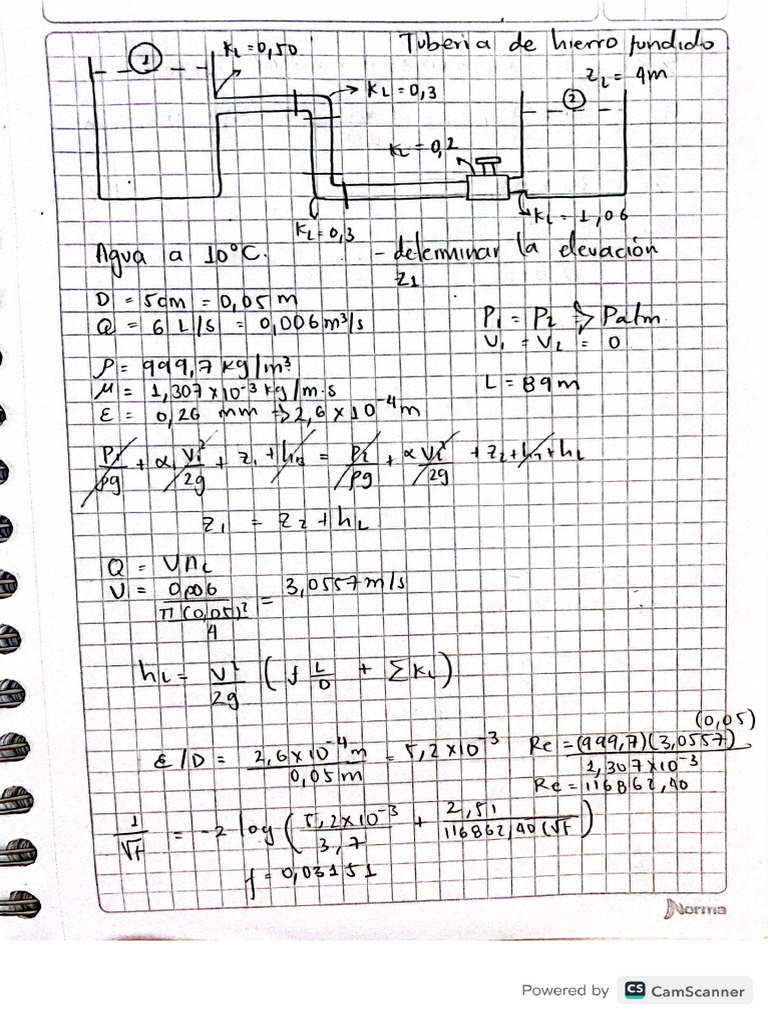 Tuberia de hierro fundido
① KL = 0,50
z2 = 4m
KL = 0,3
②
KL = 0,2
KL = 1,06
KL = 0,3
Agua a 10°C. - determinar la elevación
z1
D = 5cm = 0,05 m
Q = 6 L/s = 0,006 m³/s
P1 = P2 => Patm
V1 = V2 = 0
ρ = 999,7 kg/m³
μ = 1,307 x 10⁻³ kg/m.s
L = 89m
ε = 0,26 mm → 2,6 x 10⁻⁴ m
P1/ρg + α V1²/2g + z1 + h = P2/ρg + α V2²/2g + z2 + h + hL
z1 = z2 + hL
Q = VAc
V = 0,006 / (π(0,05)²/4) = 3,0557 m/s
hL = V²/2g (f L/D + ΣKL)
(0,05)
ε/D = 2,6x10⁻⁴ m / 0,05 m = 5,2x10⁻³ Re = (999,7)(3,0557) / 1,307x10⁻³
Re = 116862,40
1/√f = -2 log (5,2x10⁻³ / 3,7 + 2,51 / 116862,40(√f))
f = 0,03151
Norma
Powered by CS CamScanner